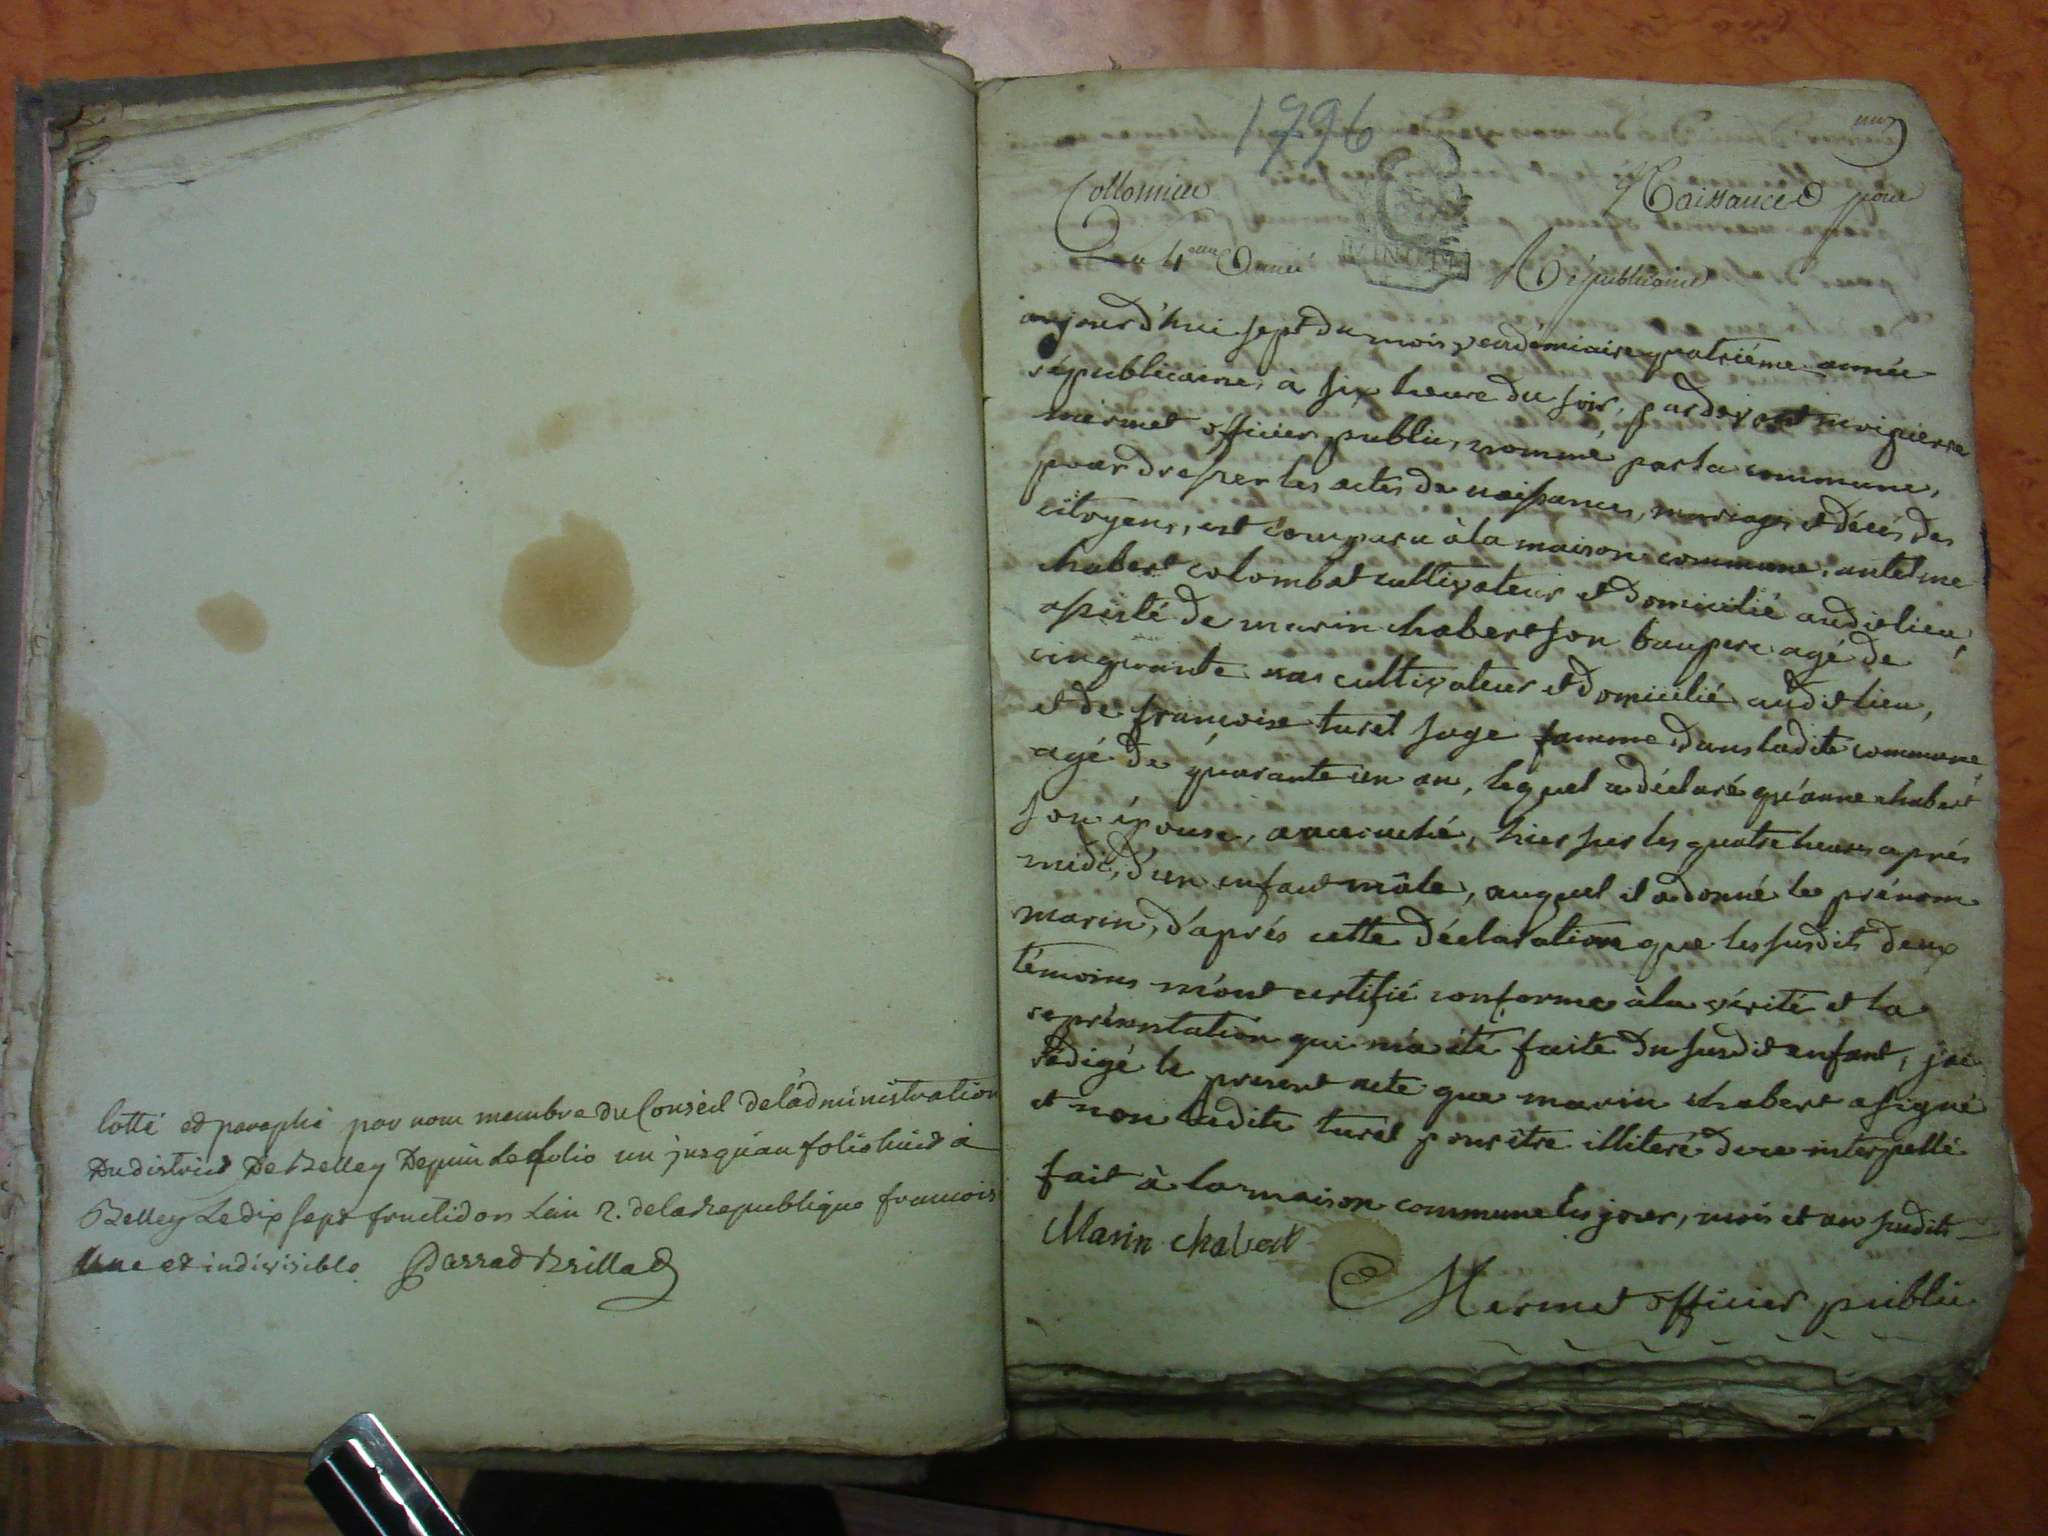 Cotté et paraphé par nous membre du Conseil de l'administration
Du district De Belley Depuis le folio un jusqu'au folio huit à
Belley Le dix sept fructidor L'an 2. de la Republique francois
une et indivisible
1796
Collomieu Naissance pour
La 4eme année Républicaine
aujourd'hui sept du mois vendémiaire quatriéme année
républicaine, à six heure du soir, pardevant moi pierre
mermet officier public, nommé par la commune,
pour dresser les actes de naissances, mariages et décés des
citoyens, est comparu à la maison commune, antelme
chabert colombat cultivateur et domicilié audit lieu,
assisté de marin chabert son baupere agé de
cinquante cultivateur et domicilié audit lieu,
et de françoise turel sage famme dans ladite commune
agé de quarante un an, lequel a déclaré qu'anne chabert
son épouse, a accouché, hier sur les quatre heures aprés
midi, d'un enfant mâle, auquel il a donné le prénom
marin, d'aprés cette déclaration que les susdits deux
témoins m'ont certifié conforme à la vérité et la
représentation qui m'a été faite du susdit enfant, j'ai
rédigé le present acte que marin chabert a signé
et non ladite turel pour être illiteré de ce interpellé
fait à la maison commune les jour, mois et an susdits
Marin chabert
Mermet officier public